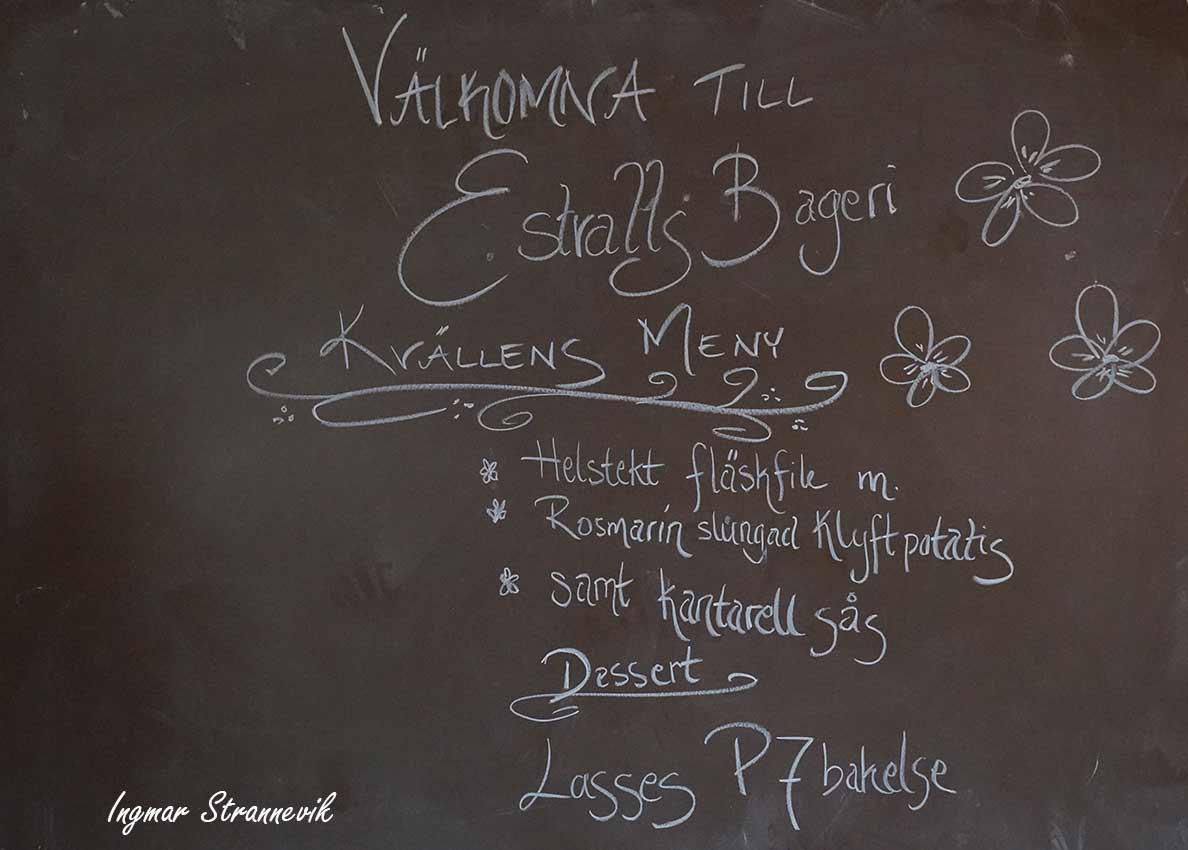 VÄLKOMNA TILL
Estralls Bageri
KVÄLLENS MENY
Helstekt fläskfile m.
Rosmarin slungad Klyftpotatis
samt kantarell sås
Dessert
Lasses P7 bakelse
Ingmar Strannevik